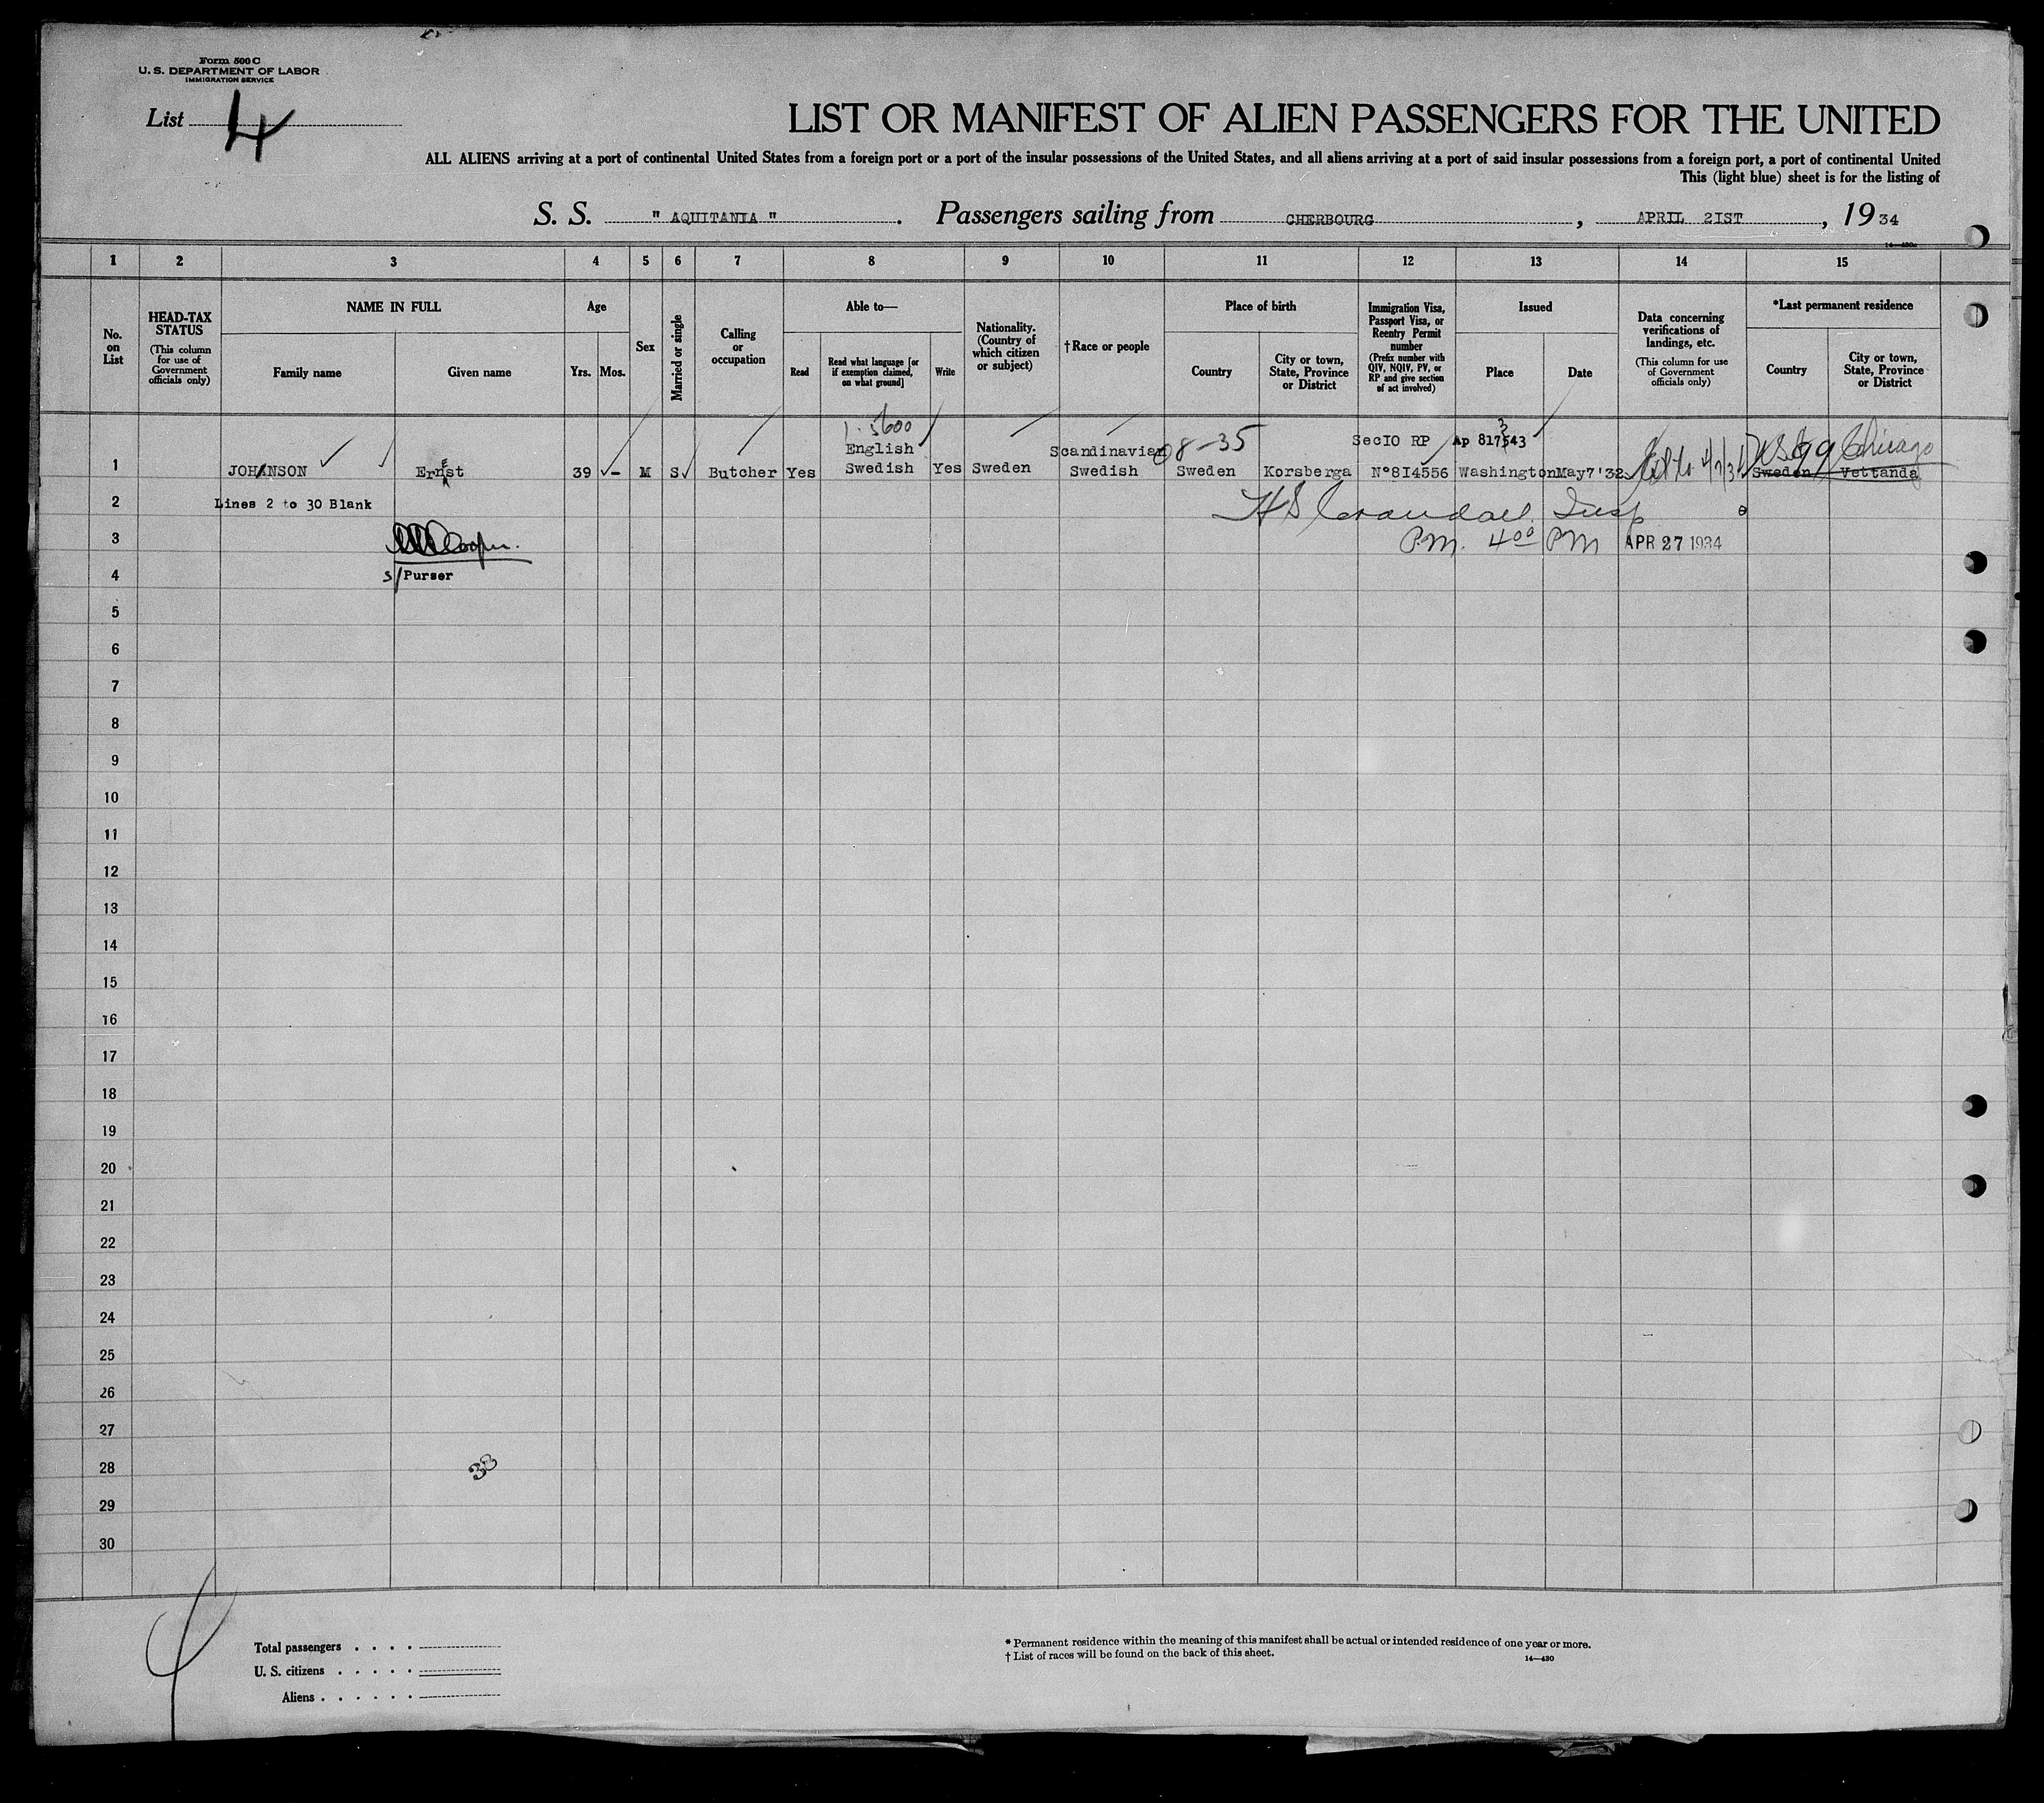 Form 500 C
U. S. DEPARTMENT OF LABOR
IMMIGRATION SERVICE
List 4
LIST OR MANIFEST OF ALIEN PASSENGERS FOR THE UNITED
ALL ALIENS arriving at a port of continental United States from a foreign port or a port of the insular possessions of the United States, and all aliens arriving at a port of said insular possessions from a foreign port, a port of continental United
This (light blue) sheet is for the listing of
S. S. " AQUITANIA ". Passengers sailing from CHERBOURG, APRIL 2IST, 19 34
14—430
1 2 3 4 5 6 7 8 9 10 11 12 13 14 15
No. on List
HEAD-TAX STATUS
(This column for use of Government officials only)
NAME IN FULL
Family name
Given name
Age
Yrs. Mos.
Sex
Married or single
Calling or occupation
Able to—
Read
Read what language [or if exemption claimed, on what ground]
Write
Nationality. (Country of which citizen or subject)
†Race or people
Place of birth
Country
City or town, State, Province or District
Immigration Visa, Passport Visa, or Reentry Permit number
(Prefix number with QIV, NQIV, PV, or RP and give section of act involved)
Issued
Place
Date
Data concerning verifications of landings, etc.
(This column for use of Government officials only)
*Last permanent residence
Country
City or town, State, Province or District
1-5600
English Scandinavian 08-35 SecIO RP Ap 817543 3 Chicago
1 JOHANSON Ernst E 39 - M S Butcher Yes Swedish Yes Sweden Swedish Sweden Korsberga N°8I4556 Washington May7'32 Sweden Vettanda
2 Lines 2 to 30 Blank H S Crandall Insp
3 Cooper. P.M. 4 00 PM APR 27 1934
4 s/Purser
5
6
7
8
9
10
11
12
13
14
15
16
17
18
19
20
21
22
23
24
25
26
27
28 38
29
30
4
Total passengers . . . .
U. S. citizens . . . . .
Aliens . . . . . .
* Permanent residence within the meaning of this manifest shall be actual or intended residence of one year or more.
† List of races will be found on the back of this sheet.
14—430